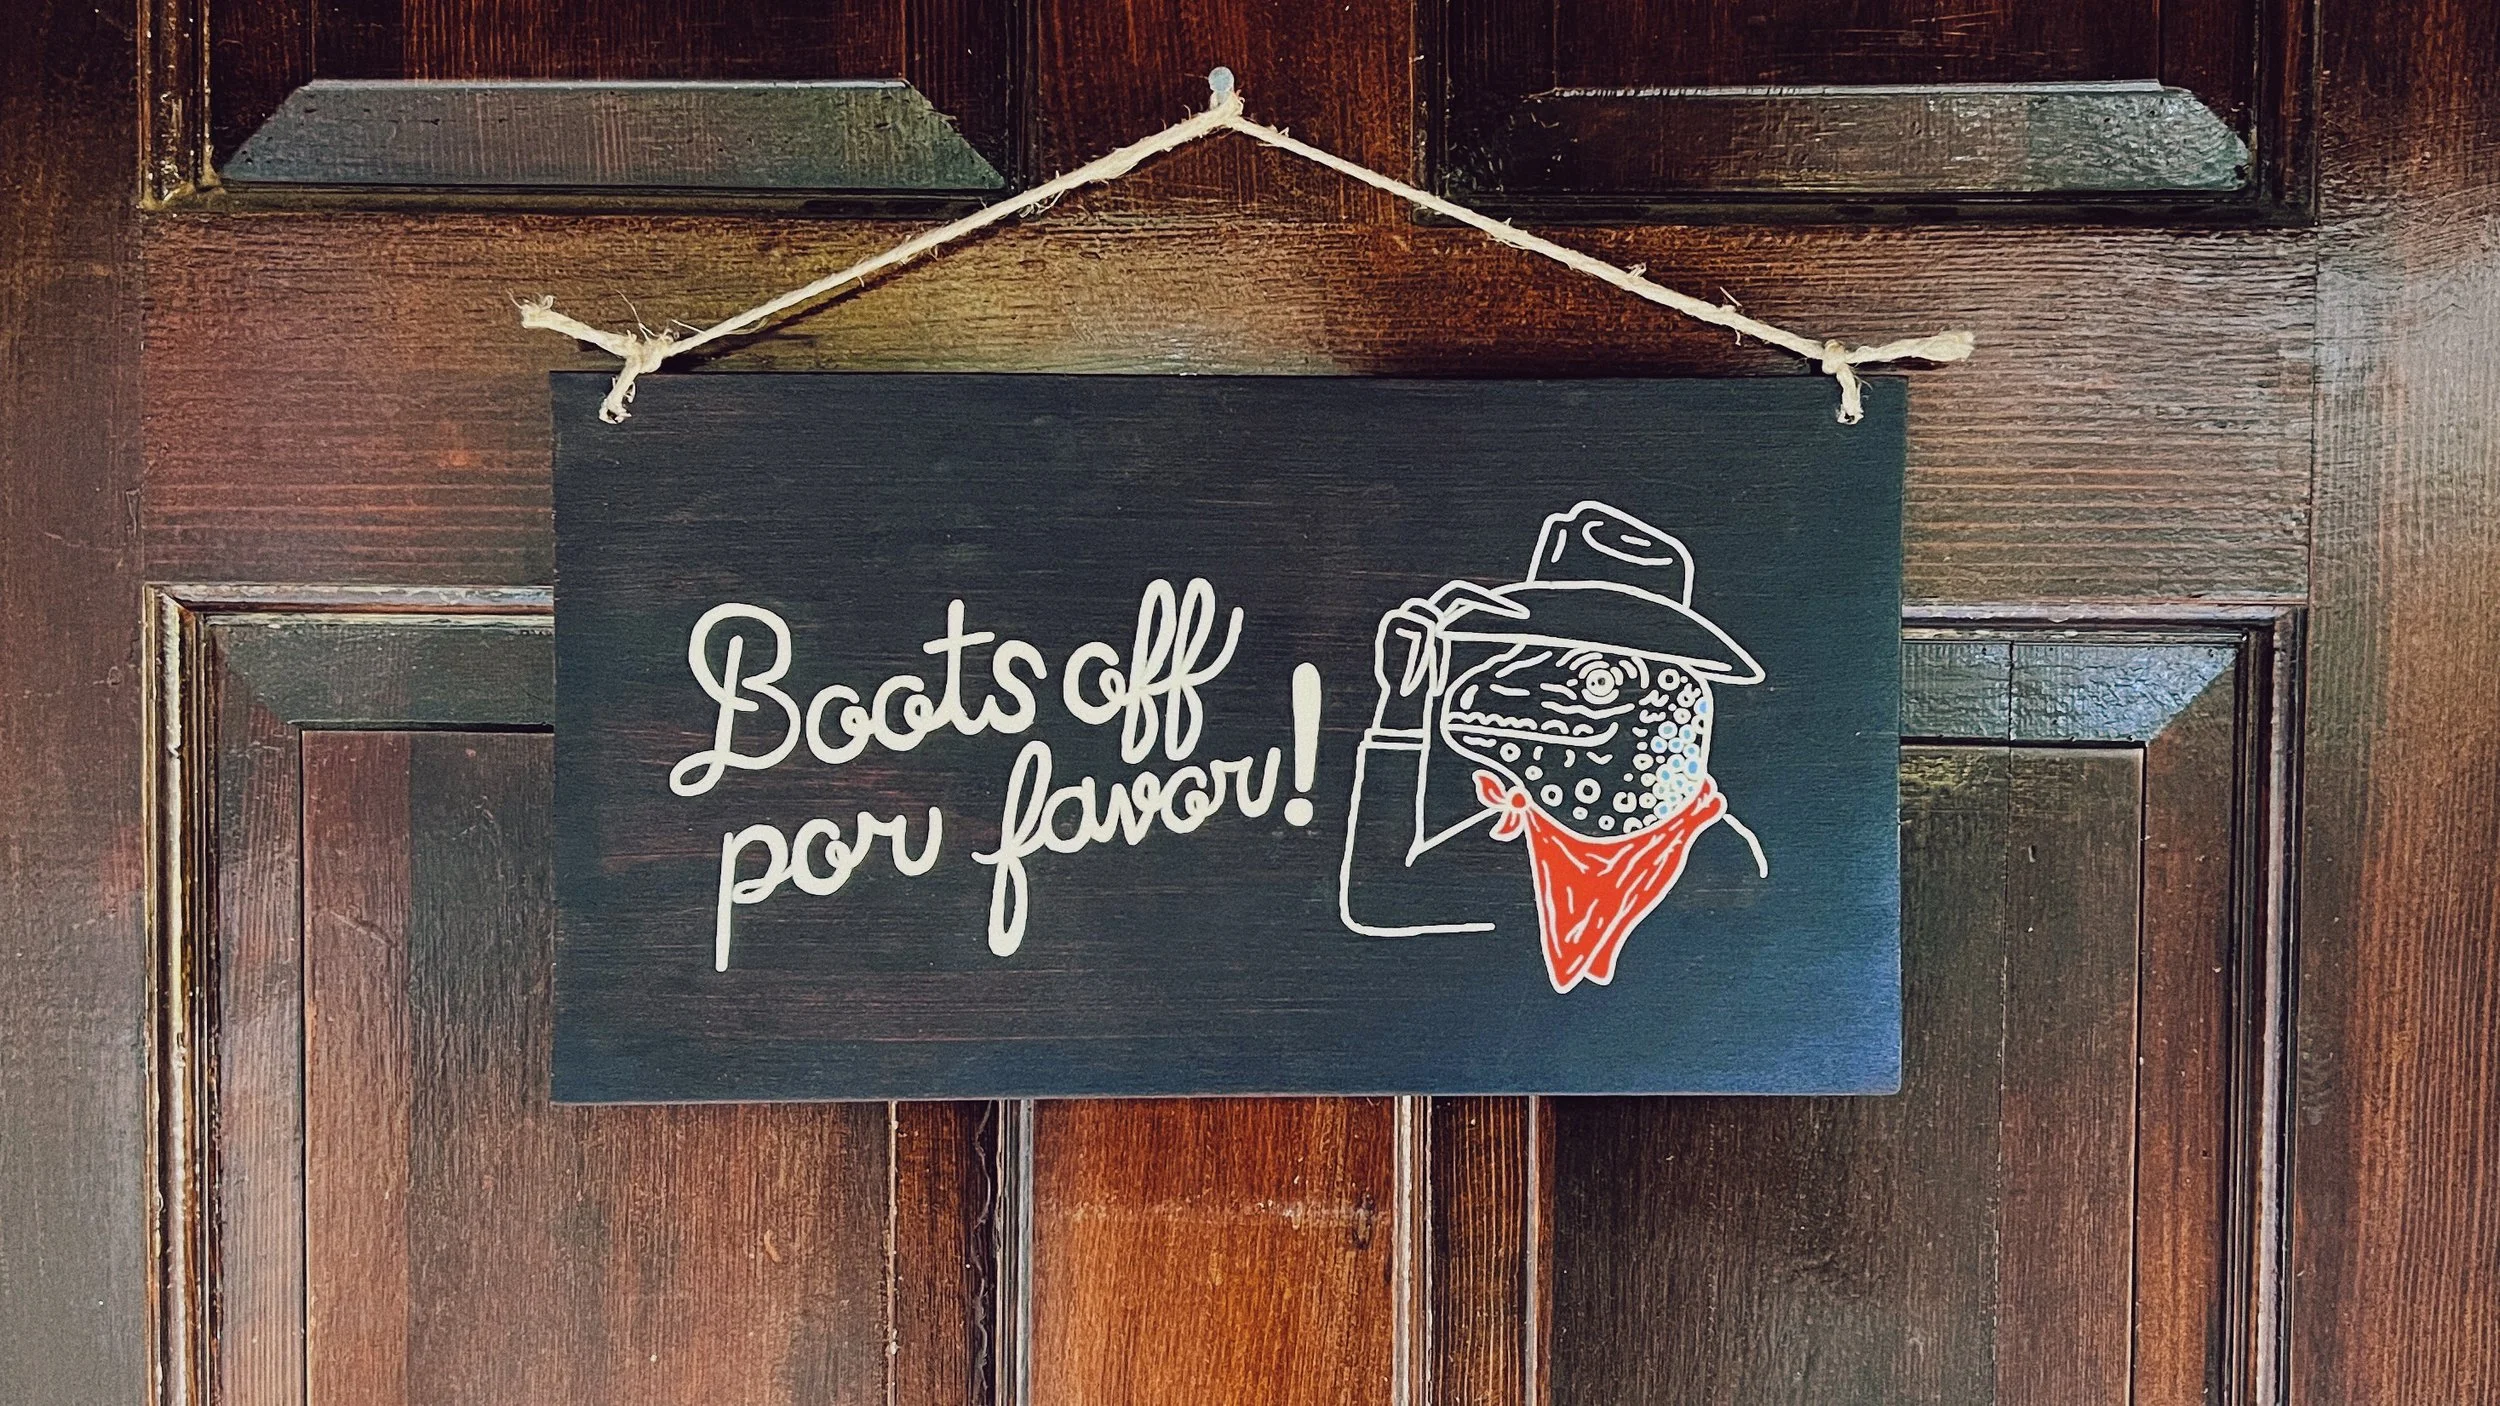 Boots off
por favor!